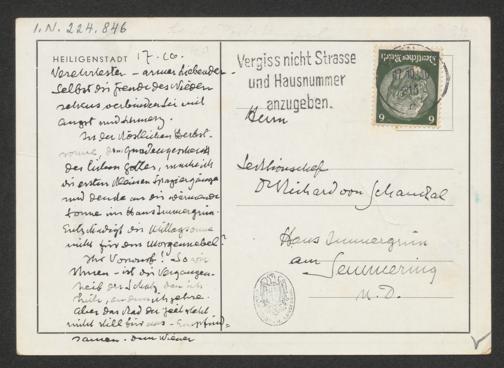 I.N. 224.846
HEILIGENSTADT 17. 10.
Verehrtester – armer Liebender –
Selbst die Freude des Wieder-
sehens verbinden Sie mit
Angst und Schmerz.
In der köstlichen Herbst-
sonne, dem Gnadengeschenk
des lieben Gottes, mache ich
die ersten kleinen Spaziergänge
und denke an die wärmende
Sonne im Haus Immergrün.
Entschädigt die Mittagssonne
nicht für den Morgennebel?
Ihr Vorwurf! So wie
Ihnen – ist die Vergangen-
heit ein Schatz, den ich
hüte, an dem ich zehre.
Aber das Rad der Zeit steht
nicht still für uns – Empfind-
samen. dem Wiener
Vergiss nicht Strasse
und Hausnummer
anzugeben.
Deutsches Reich
9 9
Herrn
Sektionschef
Dr Richard von Schaukal
Haus Immergrün
am Semmering
N. D.